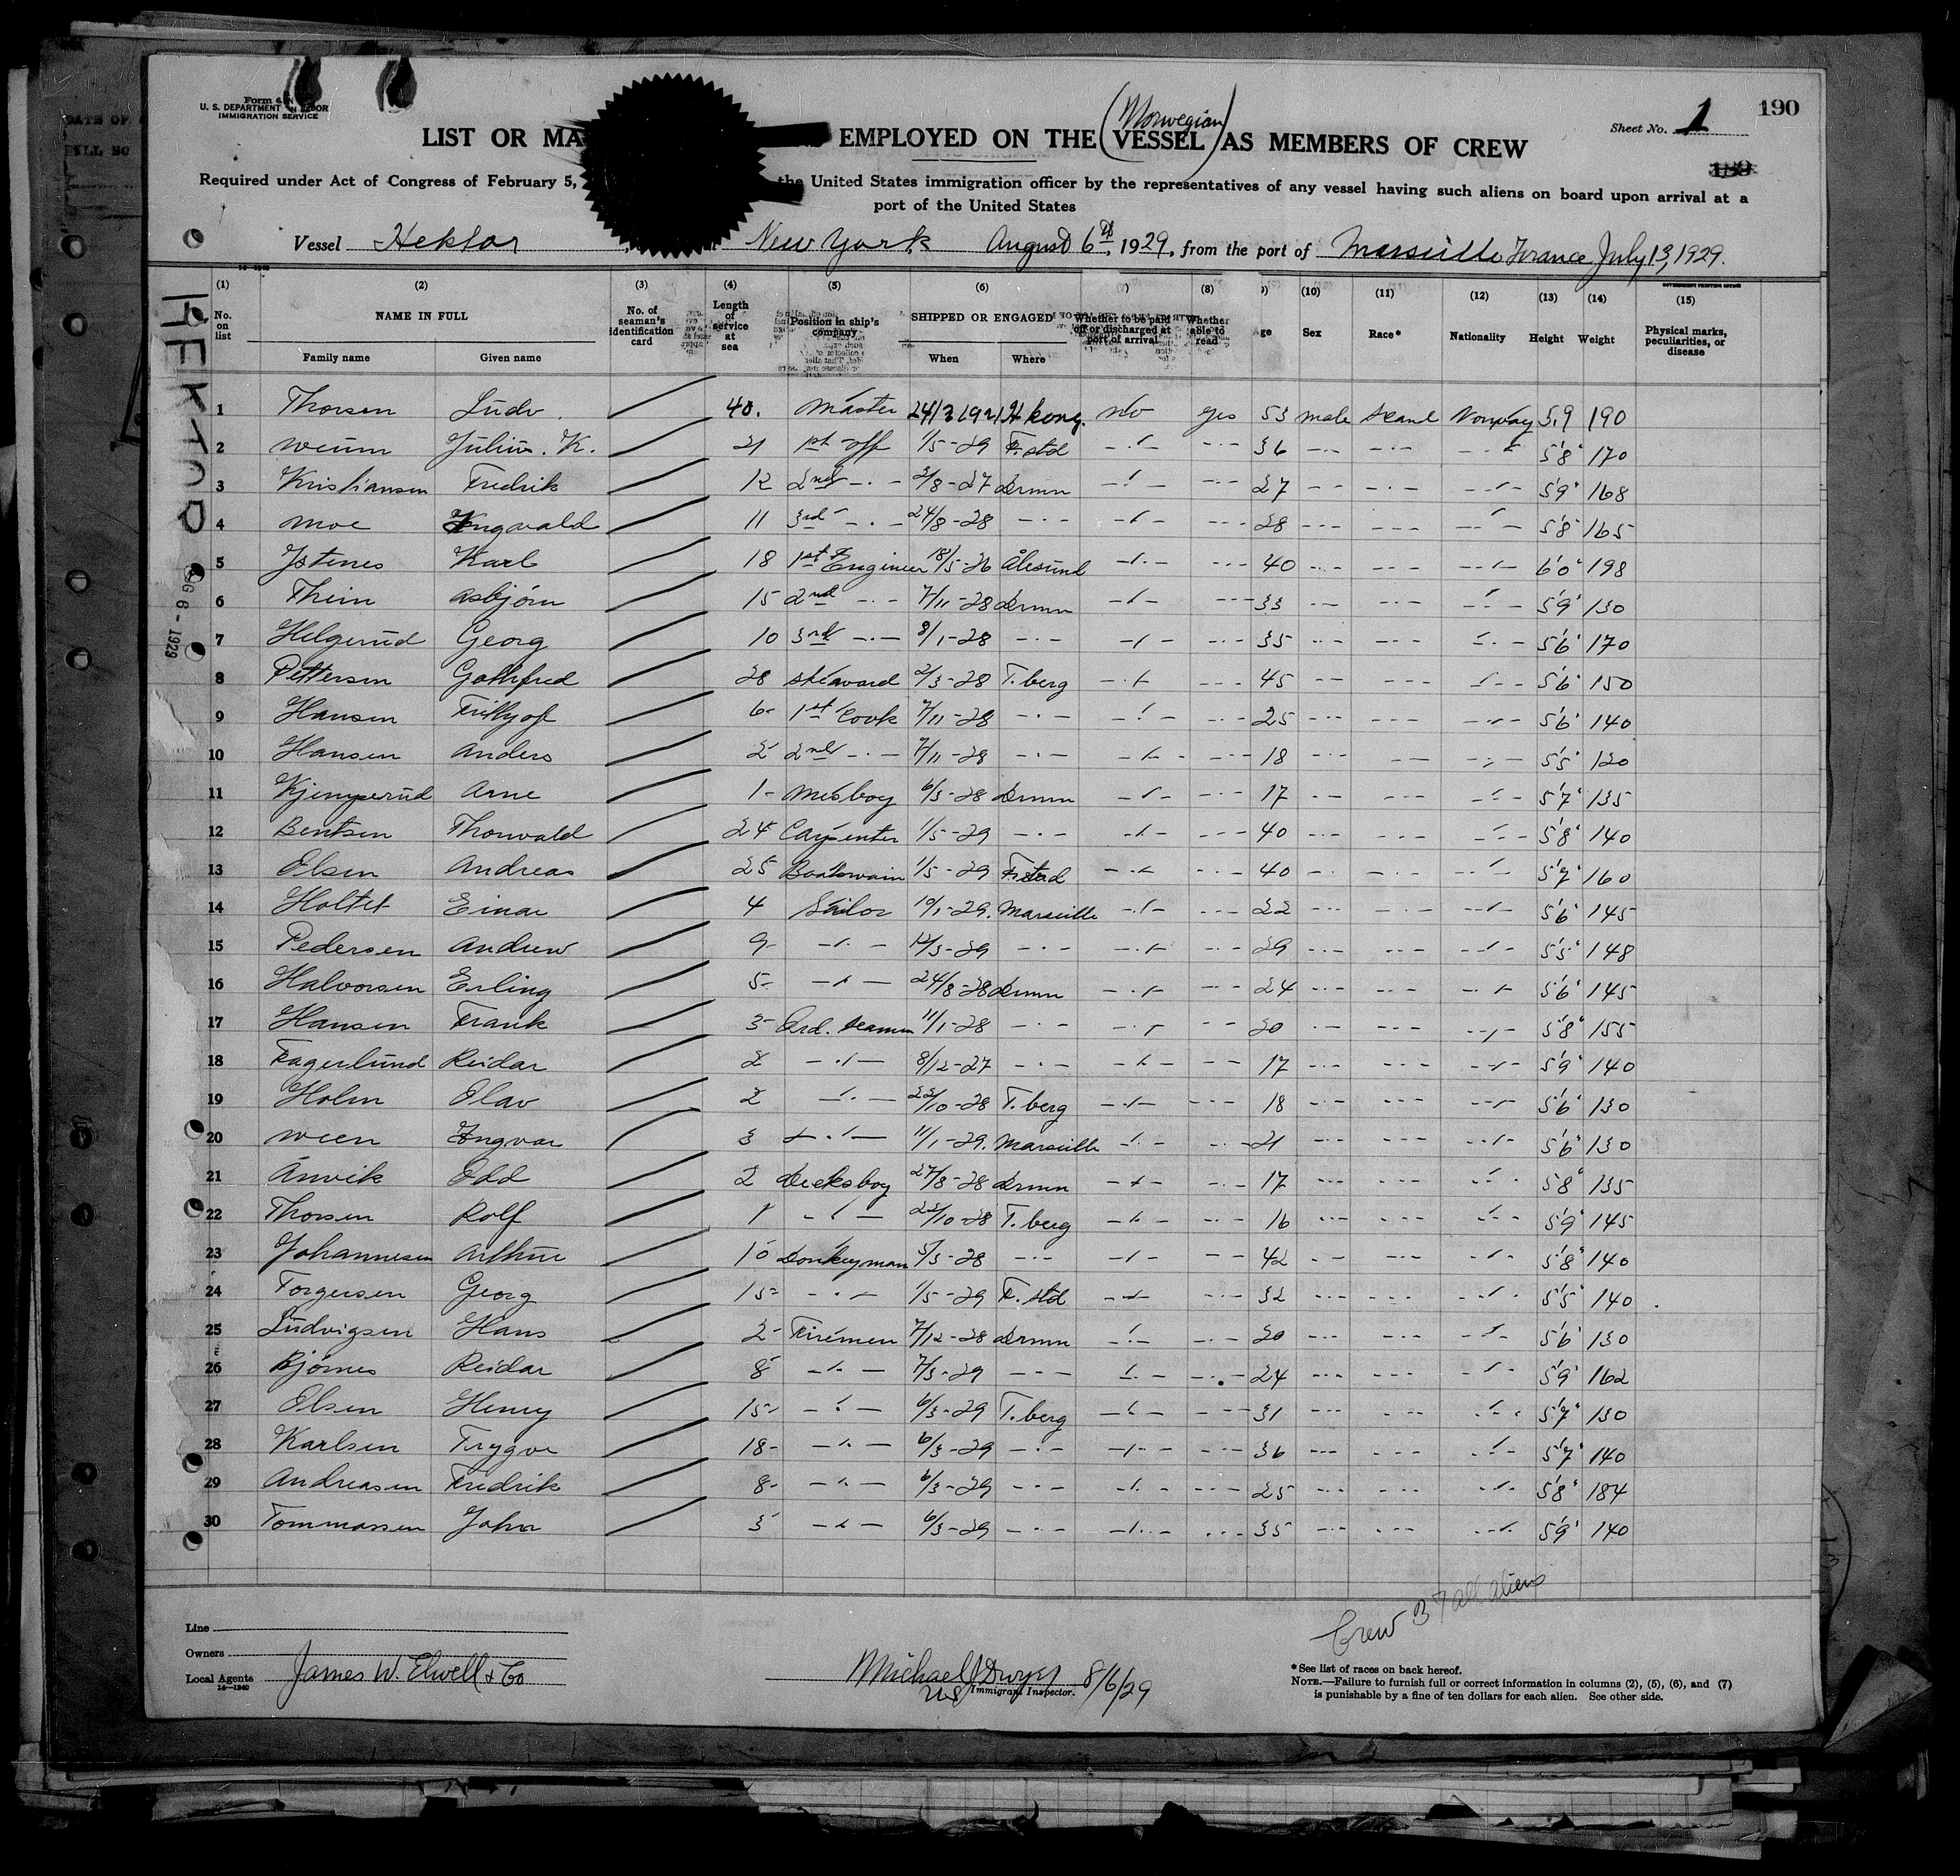 Form 6
U. S. DEPARTMENT OF LABOR
IMMIGRATION SERVICE
190
Sheet No. 1
189
(Norwegian)
LIST OR MA EMPLOYED ON THE VESSEL AS MEMBERS OF CREW
Required under Act of Congress of February 5, the United States immigration officer by the representatives of any vessel having such aliens on board upon arrival at a
port of the United States
Vessel Hektor New York August 6th, 1929, from the port of Marseille France July 13, 1929.
HEKTOR
AUG 6 - 1929
(1) (2) (3) (4) (5) (6) (7) (8) (9) (10) (11) (12) (13) (14) (15)
No. on list NAME IN FULL No. of seaman's identification card Length of service at sea Position in ship's company SHIPPED OR ENGAGED Whether to be paid off or discharged at port of arrival Whether able to read Age Sex Race* Nationality Height Weight Physical marks, peculiarities, or disease
Family name Given name When Where
1 Thorsen Ludv. 40. Master 24/3 1921 H kong. no yes 53 male Scand Norway 5,9 190
2 Weum Julius. K. 21 1st off 1/5-29 F.std -"- -"- 36 -"- -"- -"- 5'8" 170
3 Kristiansen Fredrik 12 2nd -"- 3/8-27 Drmn -"- -"- 27 -"- -"- -"- 5'9" 168
4 Moe Yngvald 11 3rd -"- 24/8-28 -"- -"- -"- 28 -"- -"- -"- 5'8" 165
5 Ystenes Karl 18 1st Engineer 18/5-26 Ålesund -"- -"- 40 -"- -"- -"- 6'0" 198
6 Thein Asbjörn 15 2nd -"- 7/11-28 Drmn -"- -"- 33 -"- -"- -"- 5'9" 130
7 Helgerud Georg 10 3rd -"- 8/1-28 -"- -"- -"- 35 -"- -"- -"- 5'6" 170
8 Pettersen Gothfred 28 Steward 2/3-28 T.berg -"- -"- 45 -"- -"- -"- 5'6" 150
9 Hansen Frithjof 6- 1st Cook 7/11-28 -"- -"- -"- 25 -"- -"- -"- 5'6" 140
10 Hansen Anders 2 2nd -"- 7/11-28 -"- -"- -"- 18 -"- -"- -"- 5'5" 120
11 Kjemperud Arne 1- Mesboy 6/3-28 Drmn -"- -"- 17 -"- -"- -"- 5'7" 135
12 Bentsen Thorvald 24 Carpenter 1/5-29 -"- -"- -"- 40 -"- -"- -"- 5'8" 140
13 Olsen Andreas 25 Boatswain 1/5-29 F.stad -"- -"- 40 -"- -"- -"- 5'7" 160
14 Holtet Einar 4 Sailor 10/1-29. Marseille -"- -"- 22 -"- -"- -"- 5'6" 145
15 Pedersen Andrew 9- -"- 12/3-29 -"- -"- -"- 29 -"- -"- -"- 5'5" 148
16 Halvorsen Erling 5- -"- 24/8-28 Drmn -"- -"- 24 -"- -"- -"- 5'6" 145
17 Hansen Frank 3 Ord. Seamn 11/1-28 -"- -"- -"- 20 -"- -"- -"- 5'8" 155
18 Fagerlund Reidar 2 -"- 8/12-27 -"- -"- -"- 17 -"- -"- -"- 5'9" 140
19 Holm Olav 2 -"- 22/10-28 T.berg -"- -"- 18 -"- -"- -"- 5'6" 130
20 Ween Yngvar 3 -"- 11/1-29. Marseille -"- -"- 21 -"- -"- -"- 5'6" 130
21 Anvik Odd 2 Decksboy 27/8-28 Drmn -"- -"- 17 -"- -"- -"- 5'8" 135
22 Thorsen Rolf 1 -"- 22/10-28 T.berg -"- -"- 16 -"- -"- -"- 5'9" 145
23 Johannesen Arthur 10 Donkeyman 5/3-28 -"- -"- -"- 42 -"- -"- -"- 5'8" 140
24 Torgersen Georg 15- -"- 1/5-29 F.std -"- -"- 32 -"- -"- -"- 5'5" 140
25 Ludvigsen Hans 2- Firemen 7/12-28 Drmn -"- -"- 20 -"- -"- -"- 5'6" 130
26 Bjørnes Reidar 8 -"- 7/3-29 -"- -"- -"- 24 -"- -"- -"- 5'9" 162
27 Olsen Henry 15- -"- 6/3-29 T.berg -"- -"- 31 -"- -"- -"- 5'7" 130
28 Karlsen Trygve 18- -"- 6/3-29 -"- -"- -"- 36 -"- -"- -"- 5'7" 140
29 Andreasen Fredrik 8- -"- 6/3-29 -"- -"- -"- 25 -"- -"- -"- 5'8" 184
30 Tommassen John 3 -"- 6/3-29 -"- -"- -"- 35 -"- -"- -"- 5'9" 140
Crew 37 all aliens
Line
Owners
Local Agents James W. Elwell & Co
16—1240
Michael J Dwyer 8/6/29
U.S. Immigrant Inspector.
*See list of races on back hereof.
NOTE.—Failure to furnish full or correct information in columns (2), (5), (6), and (7)
is punishable by a fine of ten dollars for each alien. See other side.